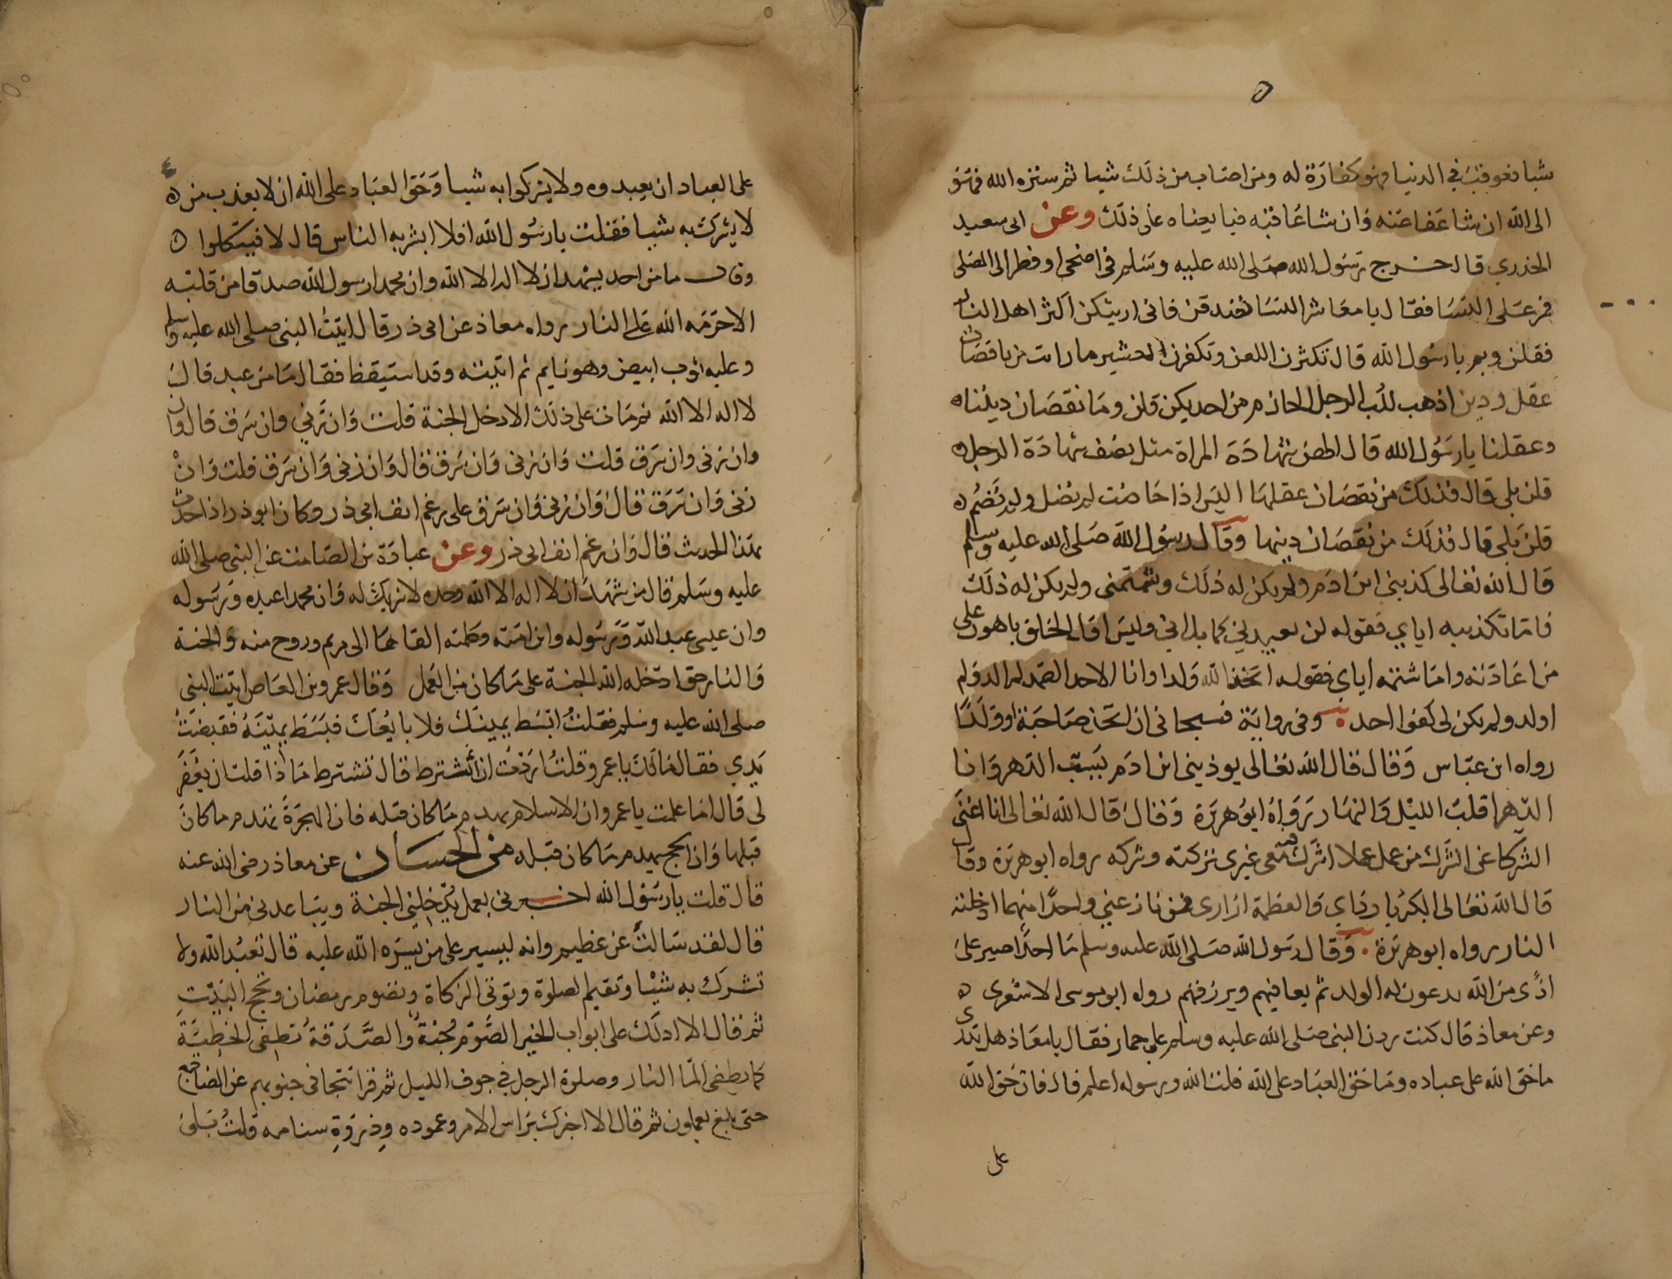 شيا فعوقب في الدنيا فهو كفارة له ومن اصاب من ذلك شيا ثم ستره الله فهو
الى الله ان شا عفا عنه وان شا عاقبه فبايعناه على ذلك وعن ابى سعيد
الخدري قال خرج رسول الله صلى الله عليه وسلم في اضحى او فطر الى المصلى
فمر على النسا فقال يا معاشر النسا تصدقن فانى اريتكن اكثر اهل النار
فقلن وبم يا رسول الله قال تكثرن اللعن وتكفرن العشير ما رات من ناقصات
عقل ودين اذهب للب الرجل الحازم من احديكن قلن وما نقصان ديننا
وعقلنا يا رسول الله قال اليس شهادة المراة مثل نصف شهادة الرجل
قلن بلى قال فذلك من نقصان عقلها اليس اذا حاضت لم تصل ولم تصم
قلن بلى قال فذلك من نقصان دينها وقال رسول الله صلى الله عليه وسلم
قال الله تعالى كذبنى ابن ادم ولم يكن له ذلك وشتمنى ولم يكن له ذلك
فاما تكذيبه اياي فقوله لن يعيدني كما بدانى وليس اول الخلق باهون على
من اعادته واما شتمه اياي فقوله اتخذ الله ولدا وانا الاحد الصمد لم الد ولم
اولد ولم يكن لى كفوا احد وفى رواية فسبحانى ان اتخذ صاحبة او ولدا
رواه ابن عباس وقال قال الله تعالى يوذينى ابن ادم بسب الدهر وانا
الدهر اقلب الليل والنهار رواه ابو هريرة وقال قال الله تعالى انا اغنى
الشركا عن الشرك من عمل عملا اشرك فيه معى غيرى تركته وشركه رواه ابو هريرة وقال
قال الله تعالى الكبريا رداي والعظمة ازارى فمن نازعني واحدا منهما ادخلته
النار رواه ابو هريرة وقال رسول الله صلى الله عليه وسلم ما احدا اصبر على
اذى من الله يدعون له الولد ثم يعافيهم ويرزقهم رواه ابو موسى الاشعرى
وعن معاذ قال كنت ردف النبى صلى الله عليه وسلم على حمار فقال يا معاذ هل تدرى
ما حق الله على عباده وما حق العباد على الله قلت الله ورسوله اعلم قال فان حق الله
على
على العباد ان يعبدوه ولا يشركوا به شيا وحق العباد على الله ان لا يعذب من
لا يشرك به شيا فقلت يا رسول الله افلا ابشر به الناس قال لا فيتكلوا
وقال ما من احد يشهد ان لا اله الا الله وان محمدا رسول الله صدقا من قلبه
الا حرمه الله على النار رواه معاذ عن ابى ذر قال اتيت النبى صلى الله عليه وسلم
وعليه ثوب ابيض وهو نايم ثم اتيته وقد استيقظ فقال ما من عبد قال
لا اله الا الله ثم مات على ذلك الا دخل الجنة قلت وان زنى وان سرق قال وان
وان زنى وان سرق قلت وان زنى وان سرق قال وان زنى وان سرق قلت وان
زنى وان سرق قال وان زنى وان سرق على رغم انف ابى ذر وكان ابو ذر اذا حدث
بهذا الحديث قال وان رغم انف ابى ذر وعن عبادة بن الصامت عن النبى صلى الله
عليه وسلم قال من شهد ان لا اله الا الله وحده لا شريك له وان محمدا عبده ورسوله
وان عيسى عبد الله ورسوله وابن امته وكلمته القاها الى مريم وروح منه والجنة
والنار حق ادخله الله الجنة على ما كان من العمل وقال عمرو بن العاص اتيت النبى
صلى الله عليه وسلم فقلت ابسط يمينك فلابايعك فبسط يمينه فقبضت
يدي فقال مالك يا عمرو قلت اردت ان اشترط قال تشترط ما ذا قلت ان يغفر
لى قال اما علمت يا عمرو ان الاسلام يهدم ما كان قبله فان الهجرة تهدم ما كان
قبلها وان الحج يهدم ما كان قبله من الحسان عن معاذ رضى الله عنه
قال قلت يا رسول الله اخبرنى بعمل يدخلني الجنة ويباعدنى من النار
قال لقد سالت عن عظيم وانه ليسير على من يسره الله عليه قال تعبد الله ولا
تشرك به شيا وتقيم الصلوة وتوتى الزكاة وتصوم رمضان وتحج البيت
ثم قال الا ادلك على ابواب الخير الصوم جنة والصدقة تطفى الخطية
كما يطفى الما النار وصلوة الرجل في جوف الليل ثم قرا تتجافى جنوبهم عن المضاجع
حتى بلغ يعملون ثم قال الا اخبرك براس الامر وعموده وذروة سنامه قلت بلى